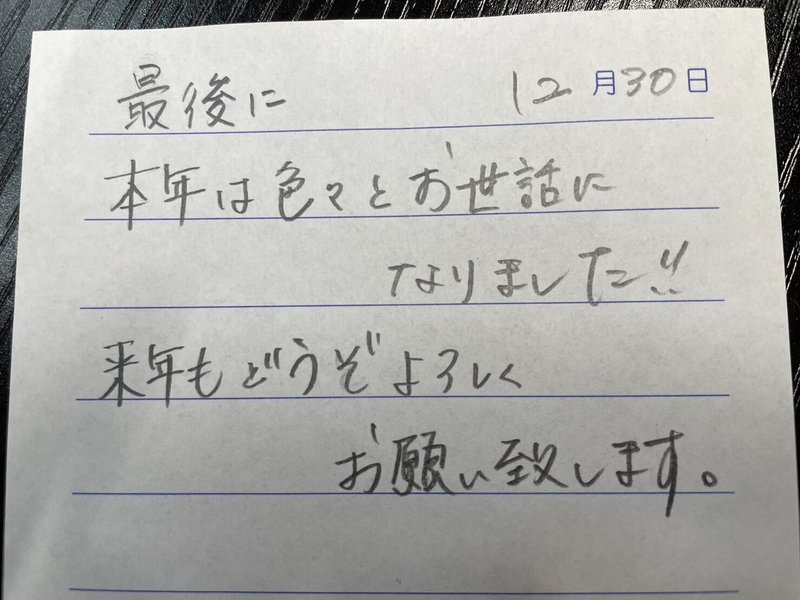 最後に 12月30日
本年は色々とお世話に
なりました!!
来年もどうぞよろしく
お願い致します。